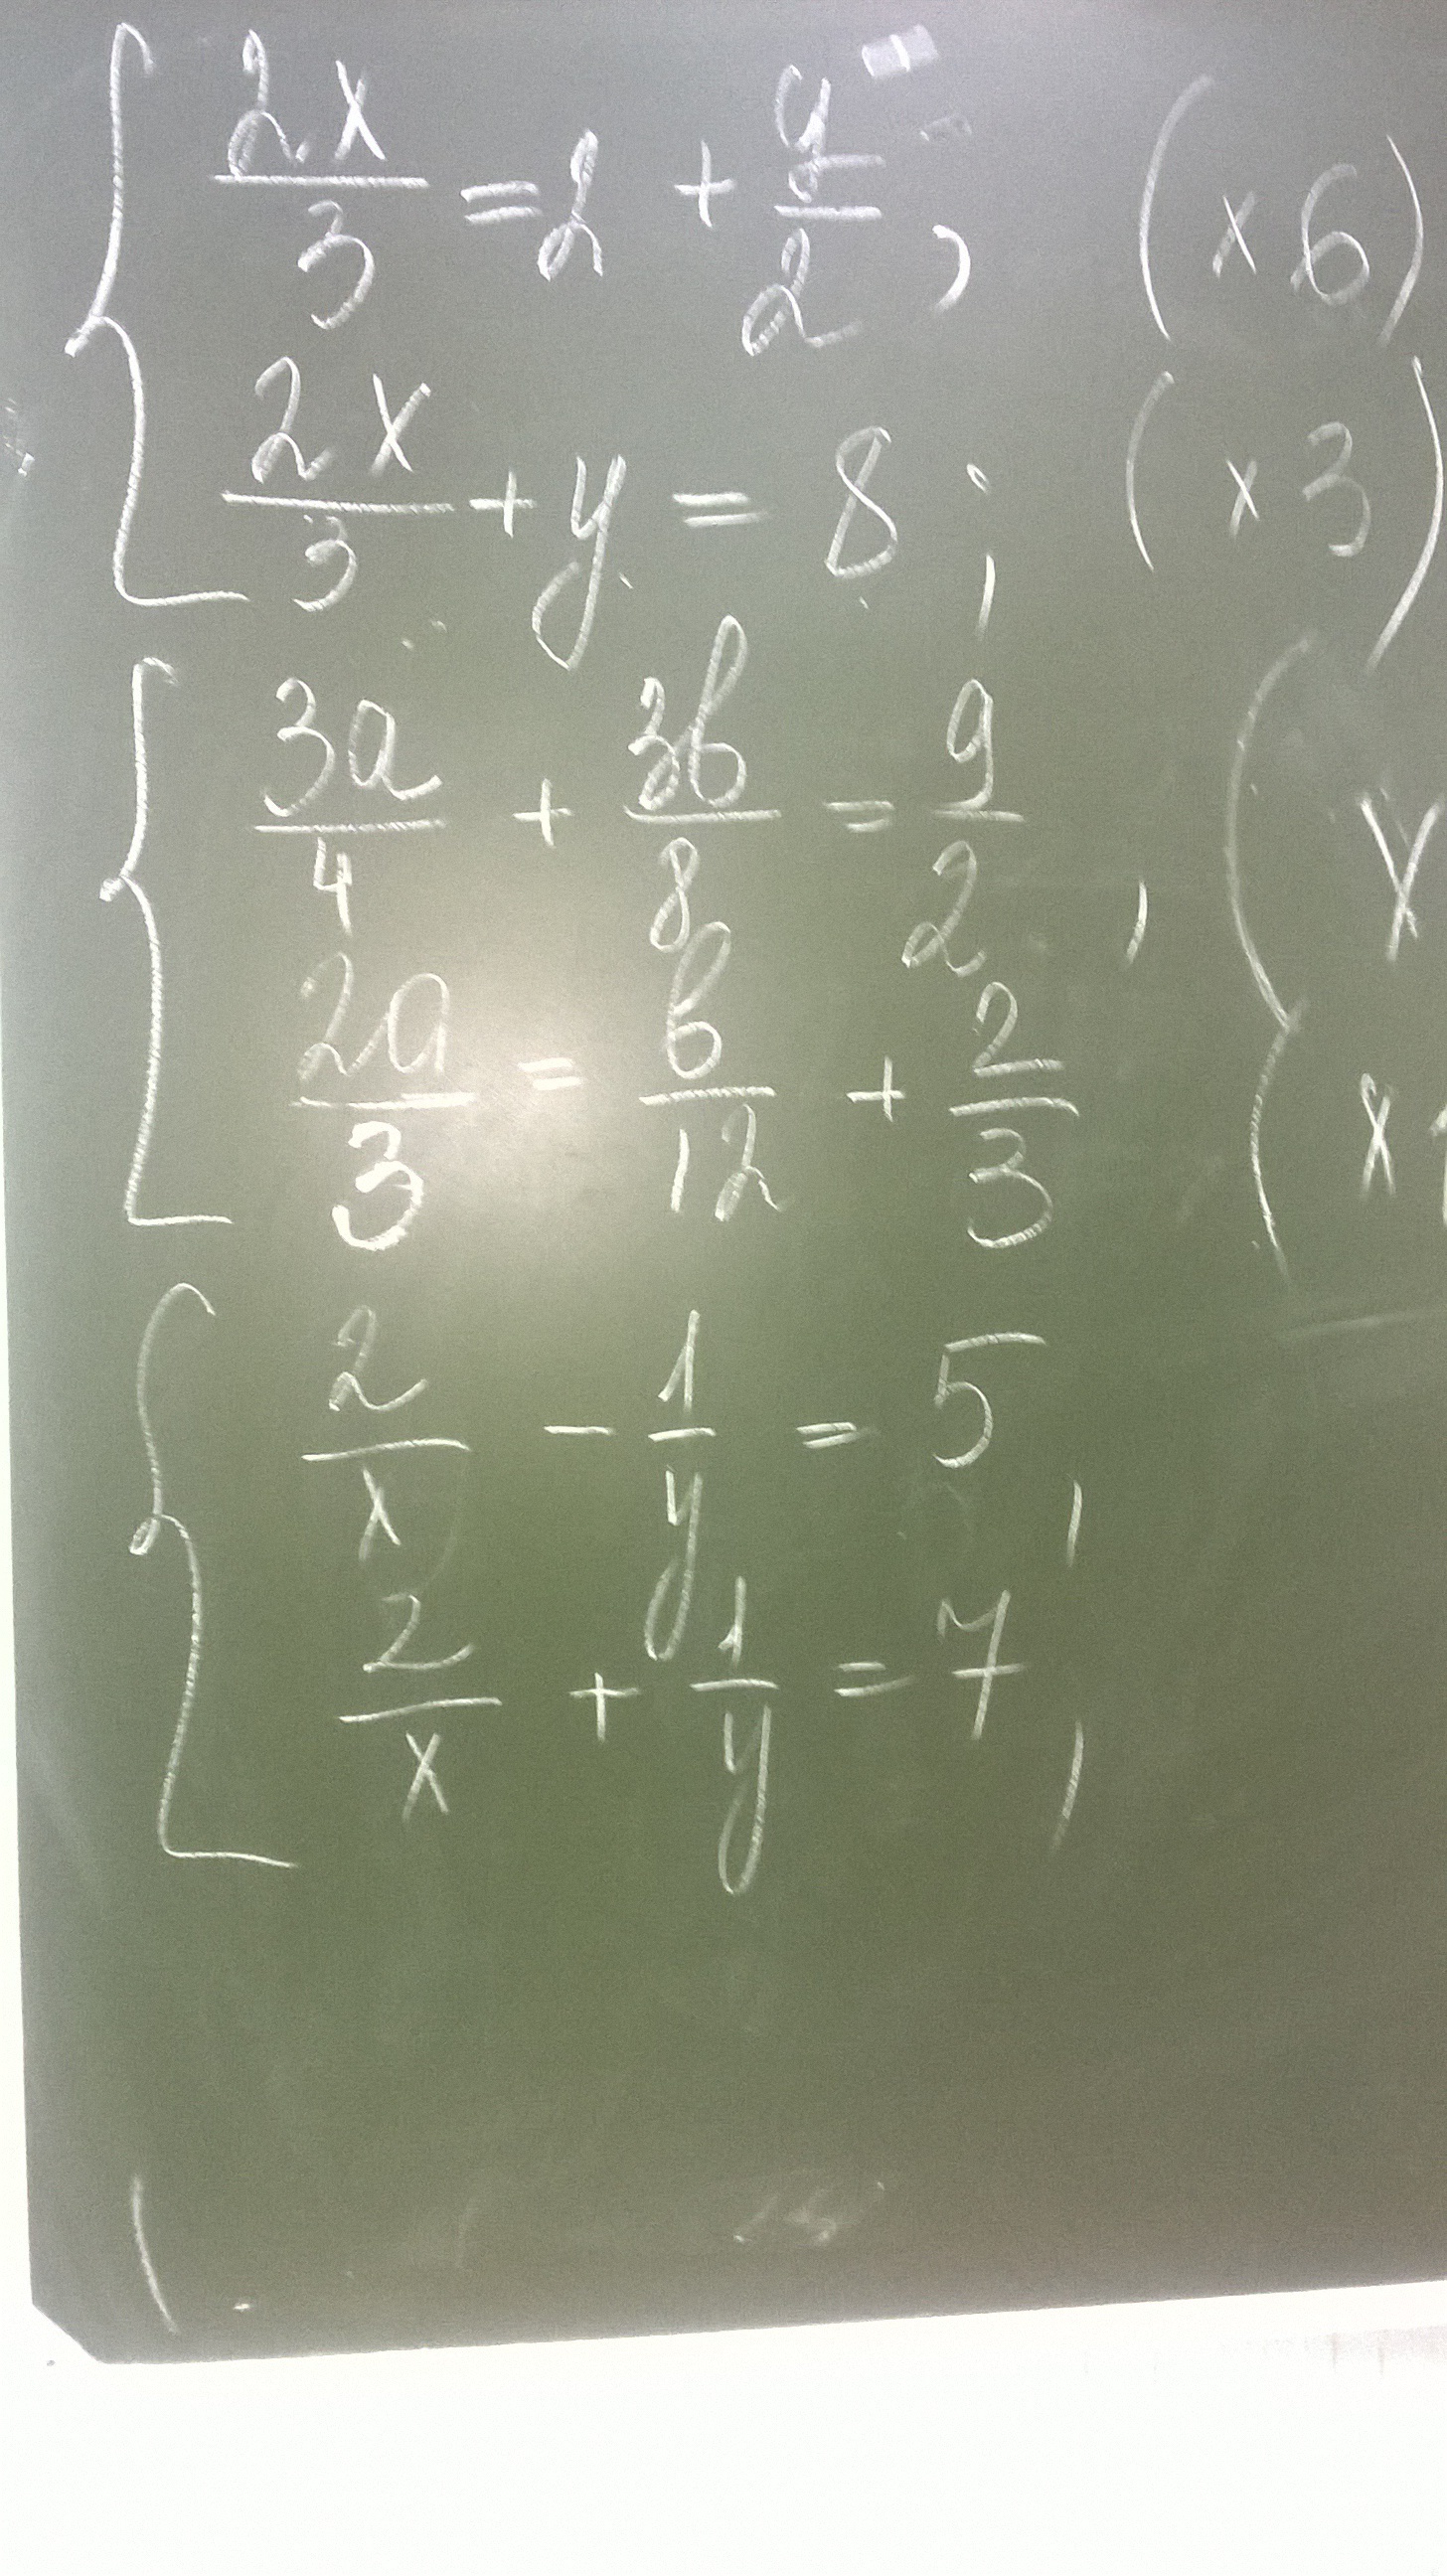 2x/3 = 2 + y/2; (x 6)
2x/3 + y = 8; (x 3)
3a/4 + 3b/8 = 9/2, (x
2a/3 = b/12 + 2/3 (x 1
2/x - 1/y = 5,
2/x + 1/y = 7,